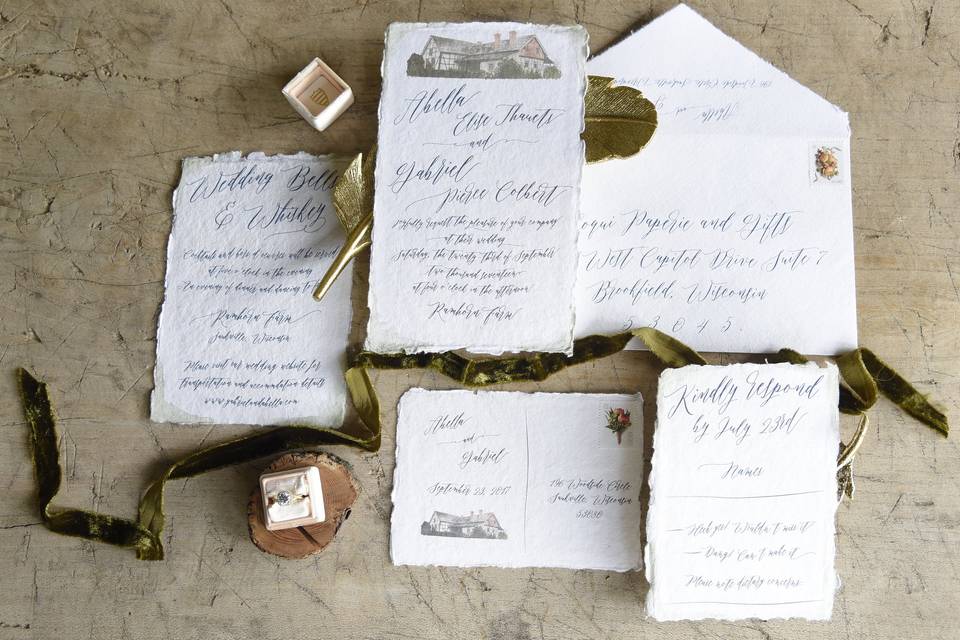 Wedding Bells
& Whiskey
Cocktails and hors d'oeuvres will be served
at five o'clock in the evening
An evening of dinner and dancing to
Ramhorn Farm
Saukville, Wisconsin
Please visit our wedding website for
transportation and accommodation details
www.gabrielandabella.com
Abella
Elise Thauets
and
Gabriel
Pierce Colbert
Joyfully request the pleasure of your company
at their wedding
Saturday, the twenty third of September
two thousand seventeen
at four o'clock in the afternoon
Ramhorn Farm
oqui Paperie and Gifts
West Capitol Drive Suite 7
Brookfield, Wisconsin
53045
Abella
and
Gabriel
September 23, 2017
The Woodside Circle
Saukville, Wisconsin
53080
Kindly respond
by July 23rd
Names
Heck yes! Wouldn't miss it
Dang! Can't make it
Please note dietary concerns